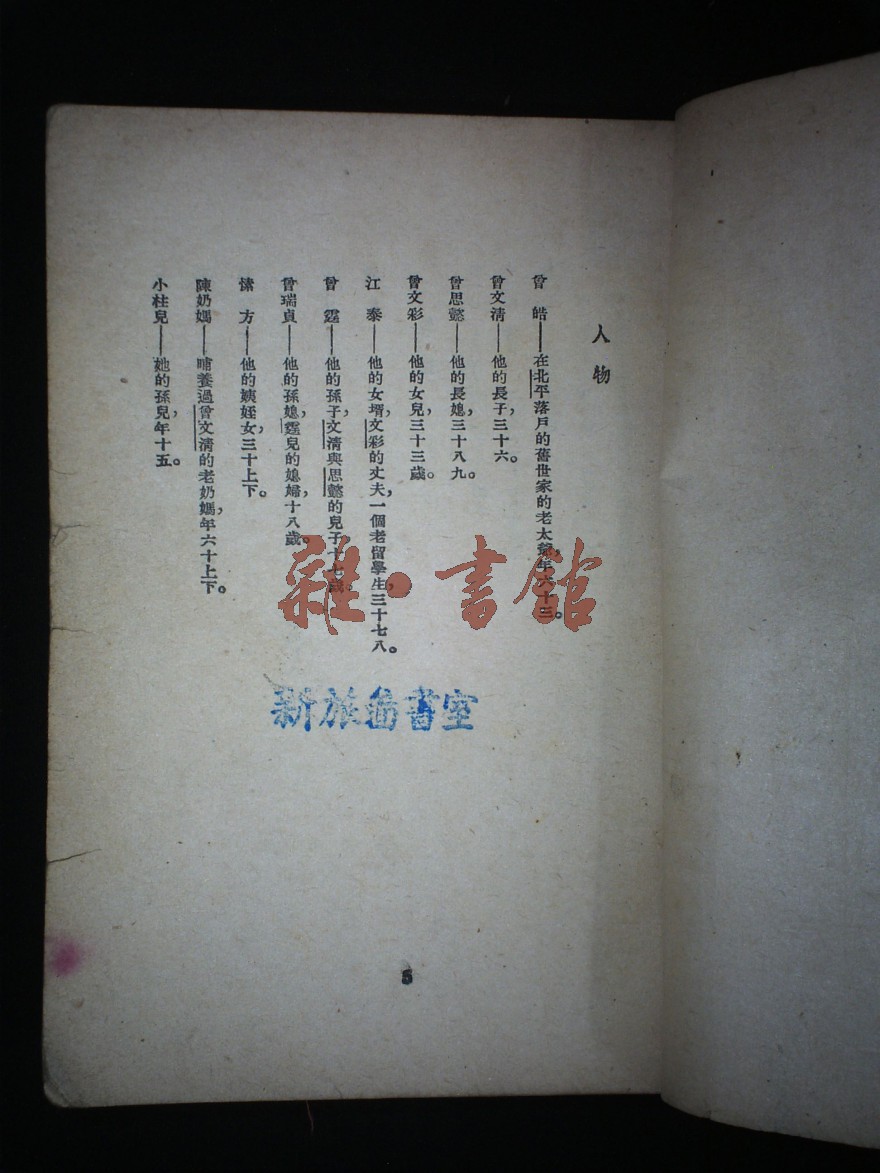 人物
曾　皓——在北平落戶的舊世家的老太爺，年六十三。
曾文清——他的長子，三十六。
曾思懿——他的長媳，三十八九。
曾文彩——他的女兒，三十三歲。
江　泰——他的女壻，文彩的丈夫，一個老留學生，三十七八。
曾　霆——他的孫子，文清與思懿的兒子，十七歲。
曾瑞貞——他的孫媳，霆兒的媳婦，十八歲。
愫　方——他的姨姪女，三十上下。
陳奶媽——哺養過曾文清的老奶媽，年六十上下。
小柱兒——她的孫兒，年十五。
雜·書館
新旅舊書室
5